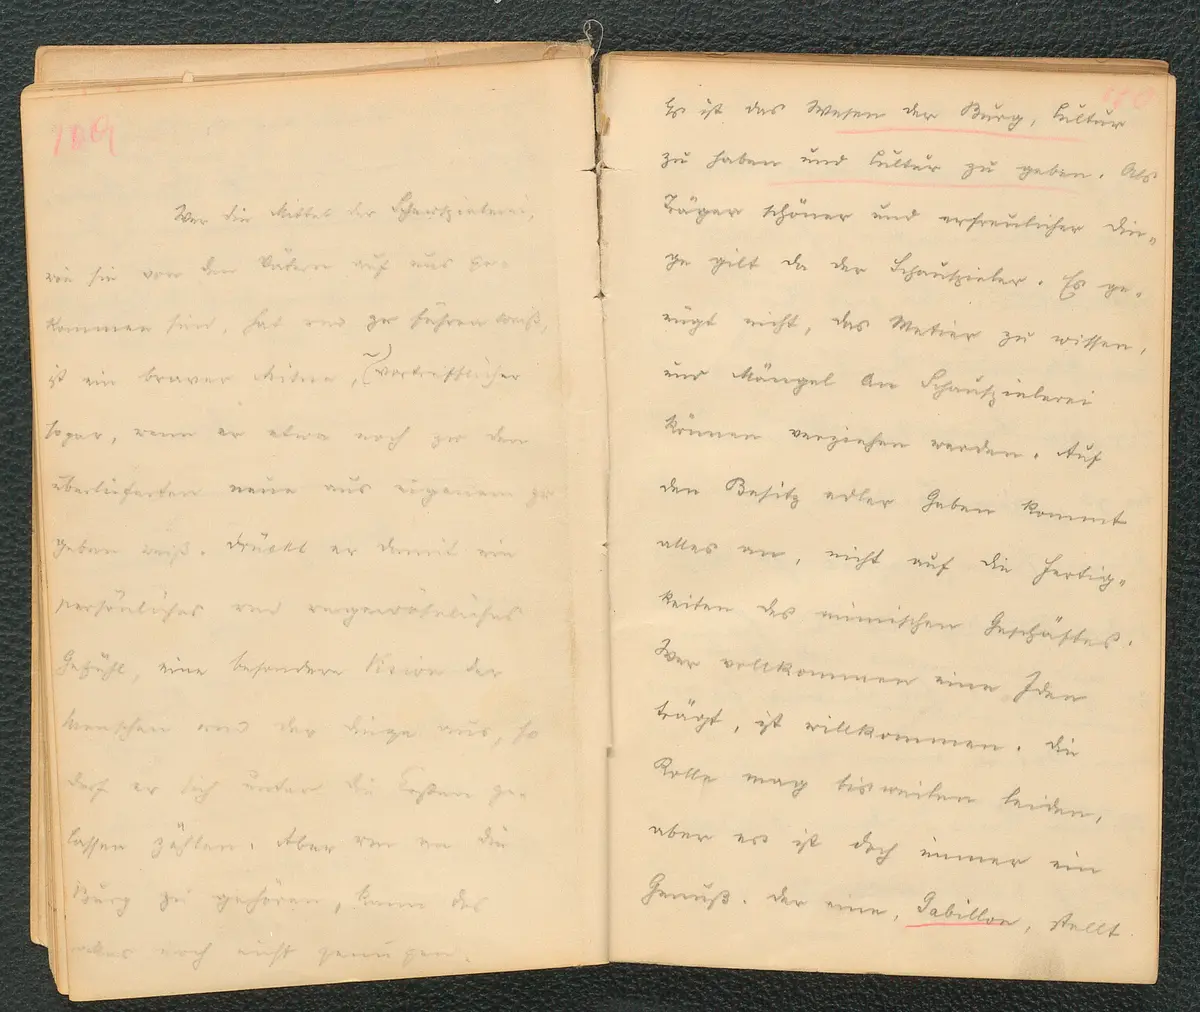 109
Wer die Mittel der Schauspielerei,
wie sie von den Vätern auf uns ge-
kommen sind, hat und zu führen weiß,
ist ein braver Mime, (vortrefflicher
sogar, wenn er etwa noch zu den
überlieferten neue aus eigenem zu
geben weiß. Drückt er damit ein
persönliches und ungewöhnliches
Gefühl, eine besondere Vision der
Menschen und der Dinge aus, so
darf er sich unter die Ersten ge-
lassen zählen. Aber um an die
Burg zu gehören, kann das
alles noch nicht genügen.
110
Es ist das Wesen der Burg, Kultur
zu haben und Kultur zu geben. Als
Träger schöner und erfreulicher Din-
ge gilt da der Schauspieler. Es ge-
nügt nicht, das Metier zu wissen,
und Mängel an Schauspielerei
können verziehen werden. Auf
den Besitz edler Gaben kommt
alles an, nicht auf die Fertig-
keiten des mimischen Geschäftes.
Wer vollkommen eine Idee
trägt, ist willkommen. Die
Rolle mag bisweilen leiden,
aber es ist doch immer ein
Genuß. Der eine, Gabillon, stellt